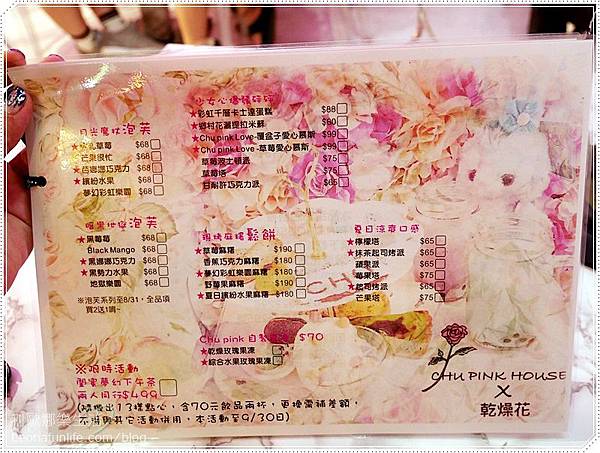 月光魔杖泡芙
草莓 $68
芒果很忙 $68
★芭娜娜巧克力 $68
★繽紛水果 $68
夢幻彩虹樂園 $68
暗黑地堡泡芙
★黑莓莓 $68
Black Mango $68
★黑娜娜巧克力 $68
★黑勢力水果 $68
地獄樂園 $68
※泡芙系列至8/31，全品項
買2送1唷~
少女心爆發
★彩虹千層卡士達蛋糕 $88
★鄉村花灑提拉米蘇 $80
★Chu pink Love-覆盆子愛心慕斯 $99
★Chu pink Love-草莓愛心慕斯 $99
草莓波士頓派 $75
草莓塔 $65
甘耐許巧克力派 $75
現烤麻糬鬆餅
★草莓麻糬 $190
香蕉巧克力麻糬 $180
★夢幻彩虹樂園麻糬 $190
野莓果麻糬 $180
★夏日繽紛水果麻糬 $180
夏日涼爽口感
★檸檬塔 $65
★抹茶起司烤派 $65
蘋果派 $65
莓果塔 $75
★起司烤派 $65
芒果塔 $75
Chu pink 自製 $70
★乾燥玫瑰果凍
★綜合水果玫瑰果凍
※限時活動
閨蜜夢幻下午茶
兩人同行$499
(隨機出13樣點心，含70元飲品兩杯，更換需補差額，
不得與其它活動併用，本活動至9/30日)
CHU PINK HOUSE
X
乾燥花
Leonafunlife.com/blog